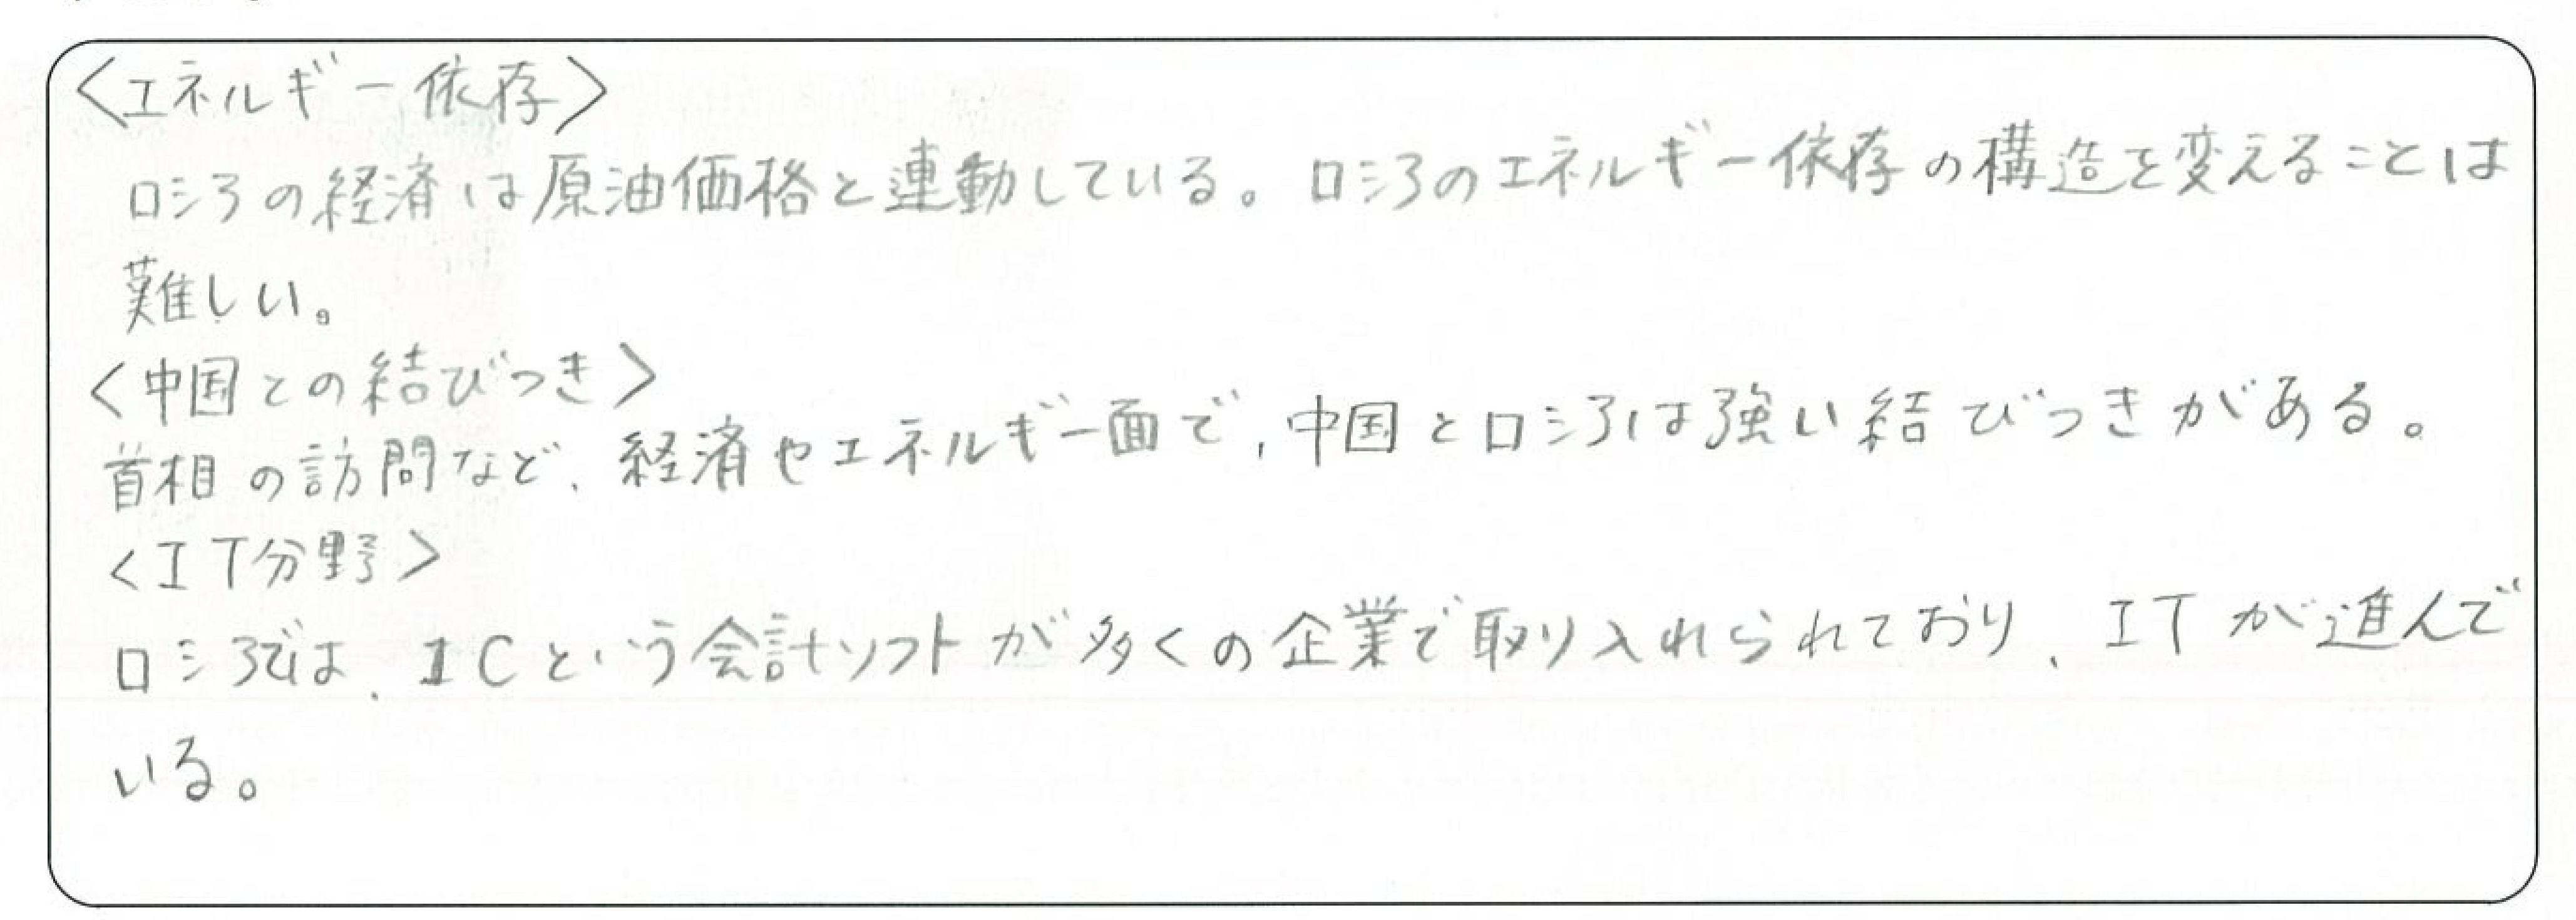 <エネルギー依存>
ロシアの経済は原油価格と連動している。ロシアのエネルギー依存の構造を変えることは
難しい。
<中国との結びつき>
首相の訪問など、経済やエネルギー面で、中国とロシアは強い結びつきがある。
<IT分野>
ロシアでは、1Cという会計ソフトが多くの企業で取り入れられており、ITが進んで
いる。